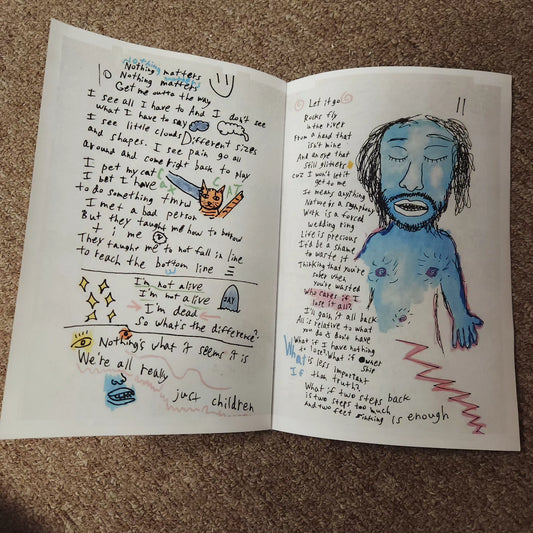 Nothing matters
10 Nothing matters
Get me outta the way
I see all I have to And I don't see
what I have to say
I see little clouds Different sizes
and shapes. I see pain go all
around and come right back to play
I pet my cat
I bet I have
to do something tmrw
Cat
CAT
I met a bad person
But they taught me how to borrow
time
They taught me to not fall in line
to reach the bottom line
I'm not alive
I'm not alive
I'm dead
So what's the difference?
Nothing's what it seems it is
We're all really
just children
11
Let it go
Rocks fly
in the river
From a hand that
isn't mine
And an eye that
still glitters
cuz I won't let it
get to me
It means anything
Nature is a symphony
Work is a forced
wedding ring
Life is precious
It'd be a shame
to waste it
Thinking that you're
sober when
you're wasted
Who cares if I
lose it all?
I'll gain it all back
All is relative to what
you do & don't have
What if I have nothing
to lose? What if owner
ship
is less important
than truth?
What If
What if two steps back
is two steps too much
and two feet sinking is enough